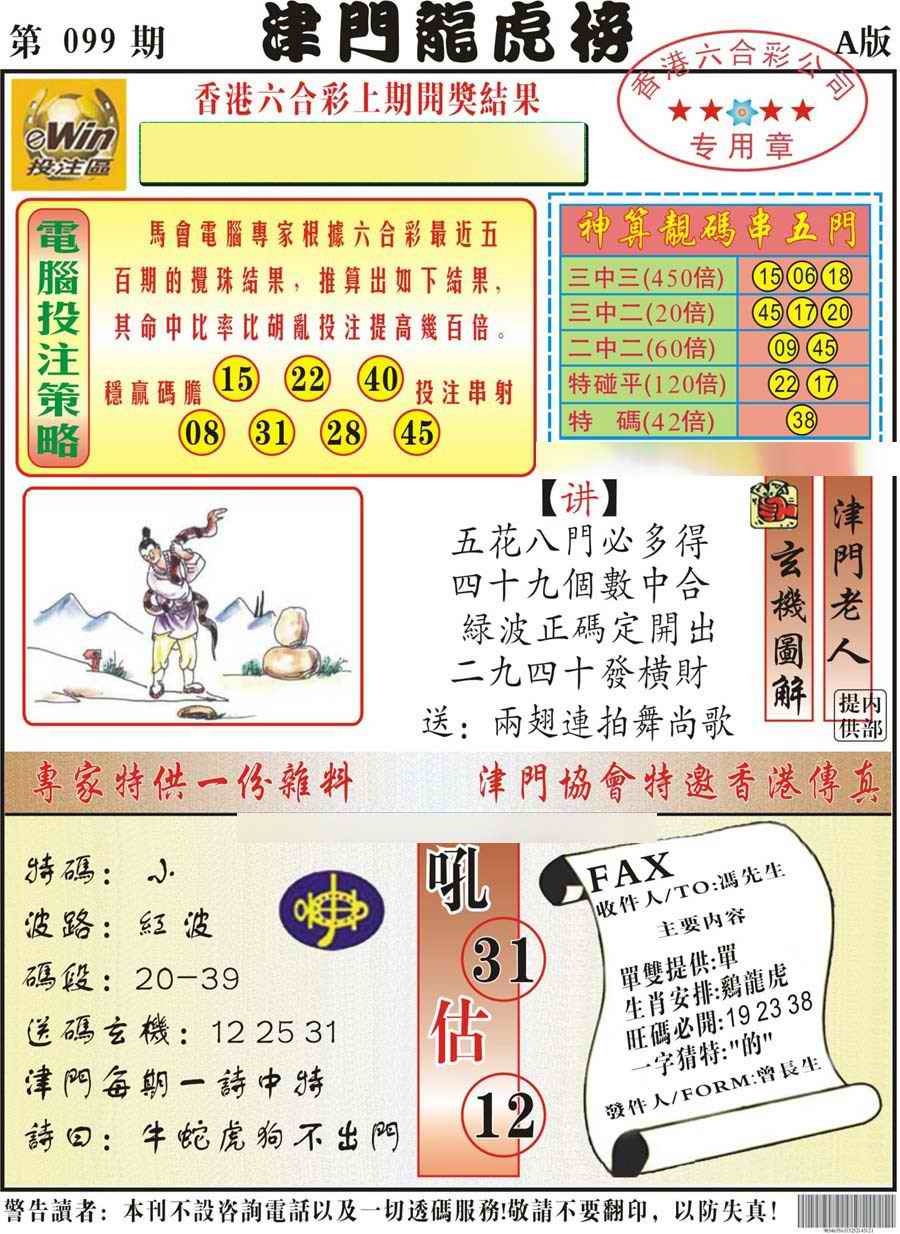 第 099 期
津門龍虎榜
A版
eWin
投注區
香港六合彩上期開獎結果
香港六合彩公司
专用章
電腦投注策略
馬會電腦專家根據六合彩最近五
百期的攪珠結果，推算出如下結果，
其命中比率比胡亂投注提高幾百倍。
穩贏碼膽 15 22 40 投注串射
08 31 28 45
神算靚碼串五門
三中三(450倍) 15 06 18
三中二(20倍) 45 17 20
二中二(60倍) 09 45
特碰平(120倍) 22 17
特 碼(42倍) 38
【讲】
五花八門必多得
四十九個數中合
緑波正碼定開出
二九四十發橫財
送：兩翅連拍舞尚歌
玄機圖解
津門老人
内部提供
專家特供一份雜料
津門協會特邀香港傳真
特碼：小
波路：紅波
碼段：20-39
送碼玄機：12 25 31
津門每期一詩中特
詩曰：牛蛇虎狗不出門
吼
31
估
12
FAX
收件人/TO:馮先生
主要内容
單雙提供:單
生肖安排:鷄龍虎
旺碼必開:19 23 38
一字猜特:"的"
發件人/FORM:曾長生
警告讀者：本刊不設咨詢電話以及一切透碼服務!敬請不要翻印，以防失真！